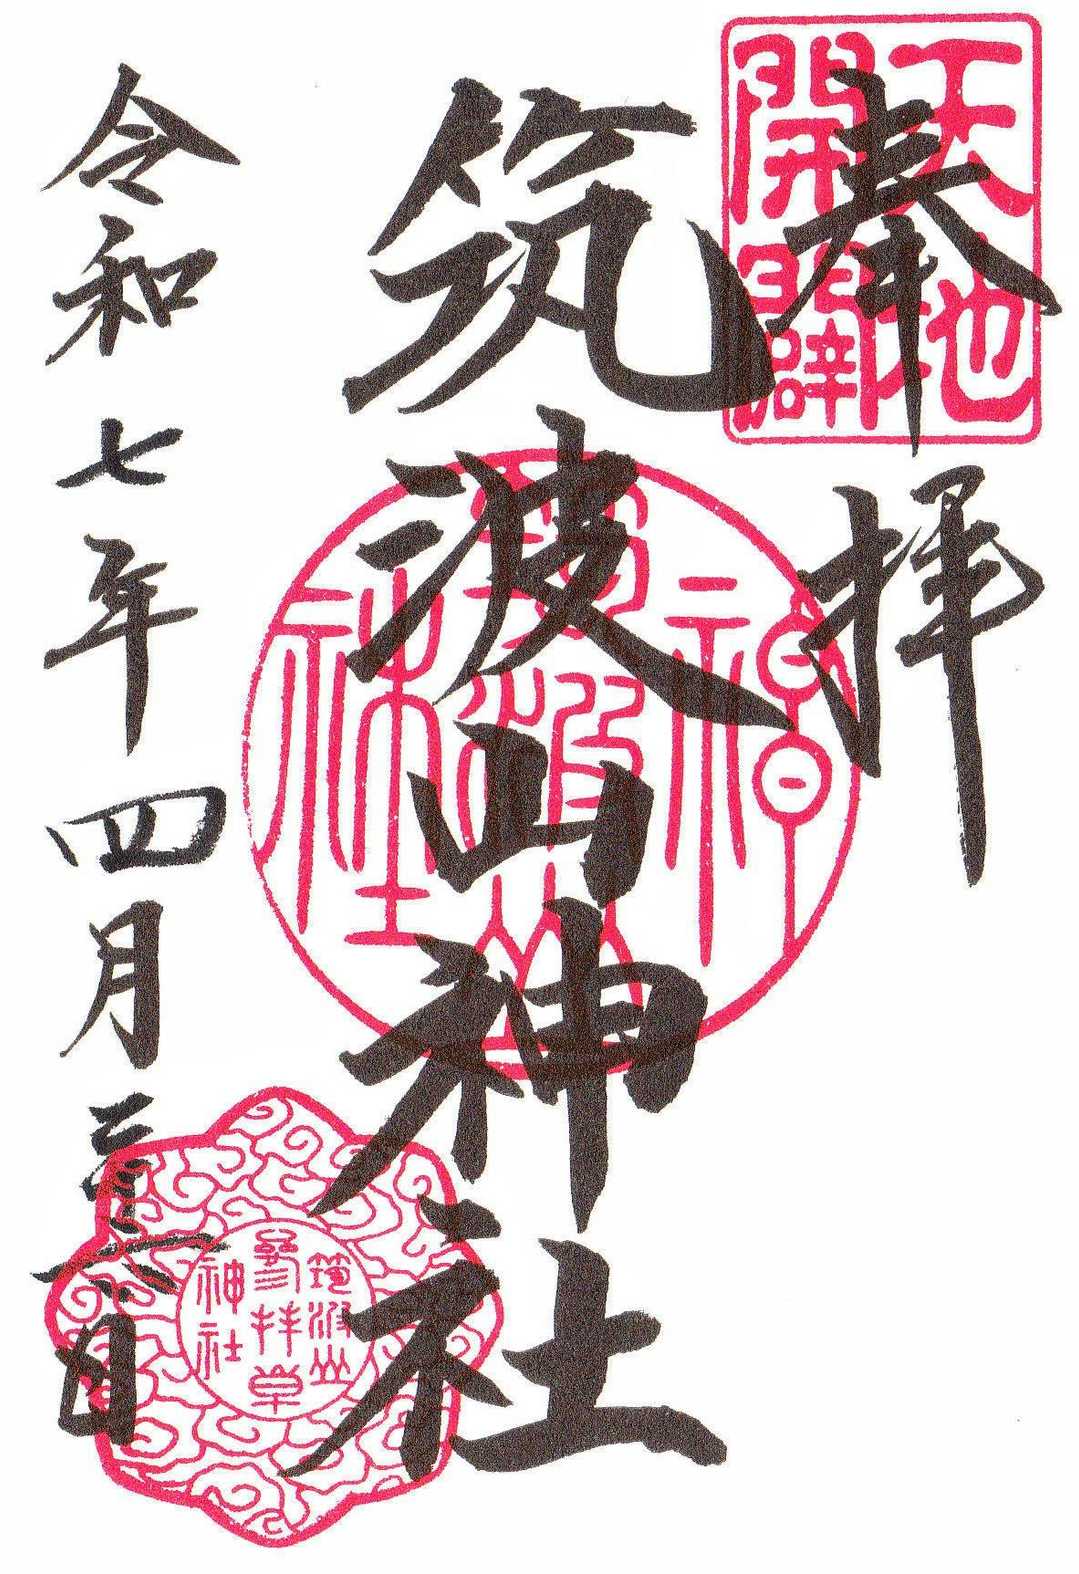 天地
開闢
奉拝
筑波山神社
筑波山神社
令和七年四月二十六日
筑波山
參拝章
神社